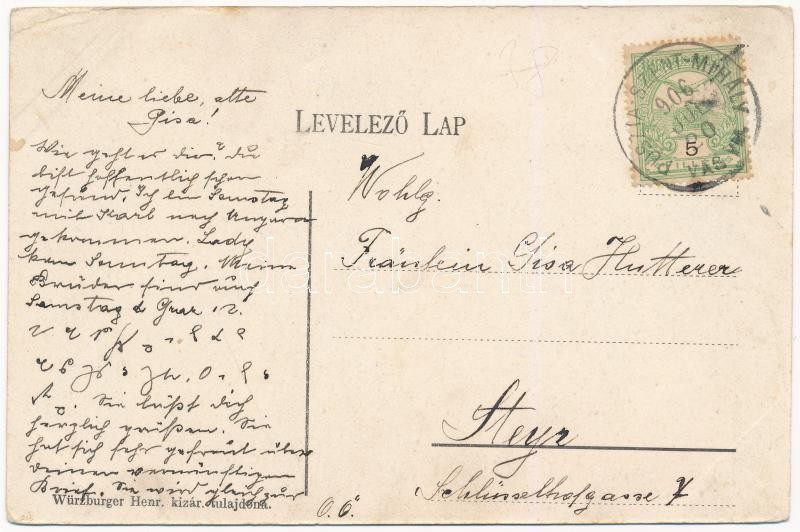 Meine liebe, alte
Gisa!
Wie geht es dir? Du
bist hoffentlich schon
gesund. Ich bin Samstag
mit Karl nach Ungarn
gekommen. Lady
kam Sonntag. Meine
Brüder sind auch
Samstag
Sie läßt dich
herzlich grüßen. Sie
hat sich sehr gefreut über
deinen vernünftigen
Brief. Sie wird gleich zur
Würzburger Henr. kizár. tulajdona.
LEVELEZŐ LAP
PUSZTA SZENT-MIHÁLY
906
20
VAS VM
5
Wohlg.
Fräulein Gisa Hutterer
Steyr
Schlüsselhofgasse 7
O. Ö.
darabanth